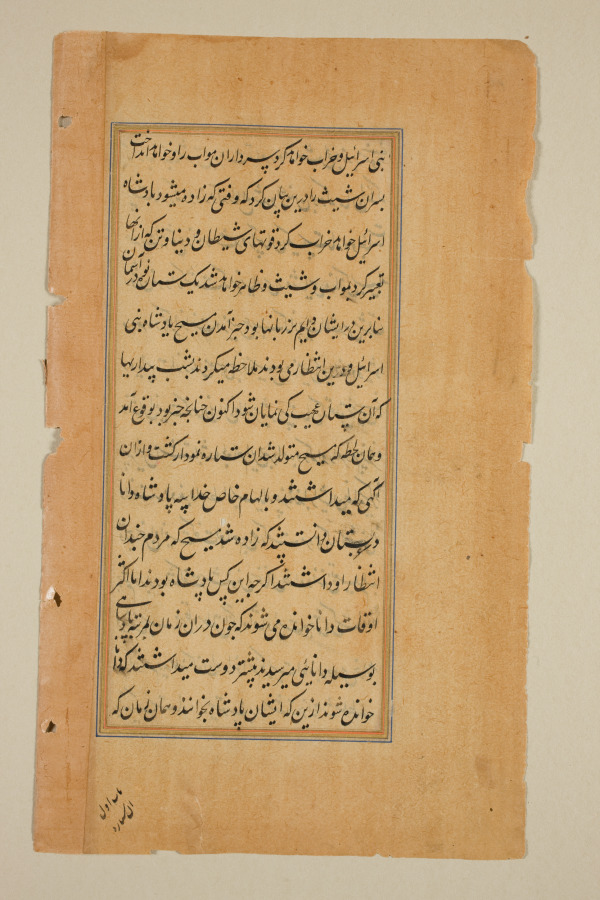 بنی اسرائیل و خراب خواهد کرد سرداران مواب را و خواهد انداخت
پسران شیث را درین بیان کرد که وقتی که زاده میشود بادشاه
اسرائیل خواهد خراب کرد قوتهای شیطان و دنیا و تن که از آنها
تعبیر کرد بمواب و شیث و ظاهر خواهد شد یک ستاره در آسمان
بنابرین در ایشان دایم بر زبانها بود خبر آمدن مسیح بادشاه بنی
اسرائیل و درین انتظار می بودند ملاحظه میکردند بشب بیداریها
که آن ستاره عجیب کی نمایان شود اکنون چنانچه خبر بود بوقوع آمد
و همان لحظه که مسیح متولد شد آن ستاره نمودار گشت و ازان
آگهی که میداشتند و بالهام خاص خدا سه پادشاه دانا
در دانستند که زاده شد مسیح که مردم چندان
انتظار او داشتند اگرچه این کس پادشاه بودند اما اکثر
اوقات دانا خوانده می شوند که چون دران زمان بمرتبه پادشاهی
بوسیله دانایی میرسیدند بیشتر دوست میداشتند که دانا
خوانده شوند ازین که ایشان پادشاه بخوانند و همان زمان که
باب اول